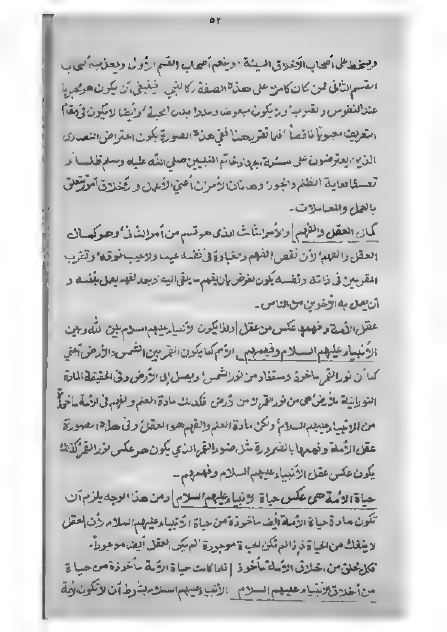 ٥٢
ويسخط على أصحاب الأخلاق السيئة، وينعم أصحاب القسم الأول ويعذب أصحاب
القسم الثاني فمن كان كاملا على هذه الصفة كالنبي فينبغي أن يكون هو محبوبا
عند النفوس والقلوب ولا يكون مبغوضا
التعريف معيوبا ناقصا فما تقرر هذا ففي هذه الصورة يكون اعتراض النصارى
الذين يعترضون على مسئلة جهاد خاتم النبيين صلى الله عليه وسلم ظلما و
تعسفا لغاية الظلم والجور وهذان الأمران أعني الأعمال والأخلاق أمور تتعلق
بالعمل والمعاملات۔
كمال العقل والفهم والأمر الثالث الذي هو قسم من أمر الثاني وهو كمال
العقل والفهم لأن نقص الفهم والغباوة في نفسه عيب ولا عيب فوقه وتقرب
المقربين في ذاته ونفسه يكون لغرض بأن يفهم ما يلقى إليه وبعد فهمه يعمل بنفسه و
أن يعمل به الآخرين من الناس۔
عقل الأمة وفهمها عكس من عقل إذا يكون الأنبياء عليهم السلام بين الله وبين
الأنبياء عليهم السلام وفهمهم الأمم كما يكون القمر بين الشمس والأرض أعني
كما أن نور القمر مأخوذ ومستفاد من نور الشمس ويصل إلى الأرض وفي الحقيقة المادة
النورانية للأرض هي من نور القمر لا من الأرض فكذلك مادة العلم والفهم في الأمة مأخوذ
من الأنبياء عليهم السلام ولكن مادة العلم والفهم هو العقل وفي هذه الصورة
عقل الأمة وفهمها بالضرورة مثل نور القمر الذي يكون هو عكس نور القمر كذلك
يكون عكس عقل الأنبياء عليهم السلام وفهمهم۔
حياة الأمة هي عكس حياة الأنبياء عليهم السلام ومن هذا الوجه يلزم أن
تكون مادة حياة الأمة أيضا مأخوذة من حياة الأنبياء عليهم السلام لأن العقل
لا ينفك من الحياة فإذا لم تكن الحياة موجودة لم يكن العقل أيضا موجودا۔
فكل خلق من أخلاق الأمة مأخوذ إذا كانت حياة الأمة مأخوذة من حياة
من أخلاق الأنبياء عليهم السلام الأنبياء عليهم السلام بشرط أن لا تكون الأمة